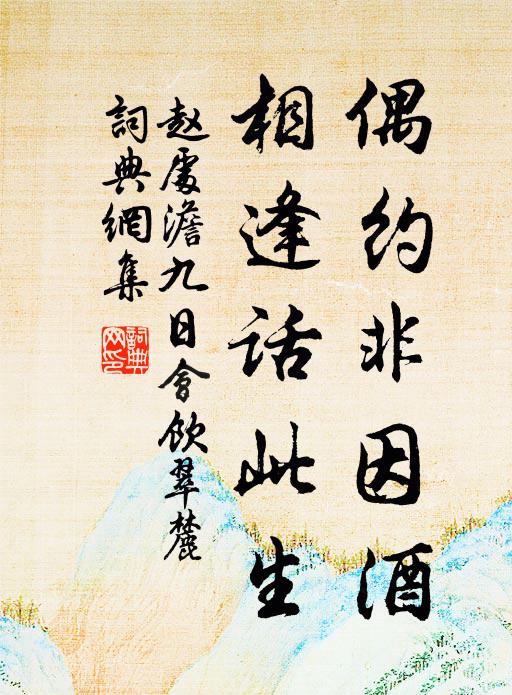 偶约非因酒
相逢话此生
赵處澹九日會饮翠麓
詞典網集
詞典網印